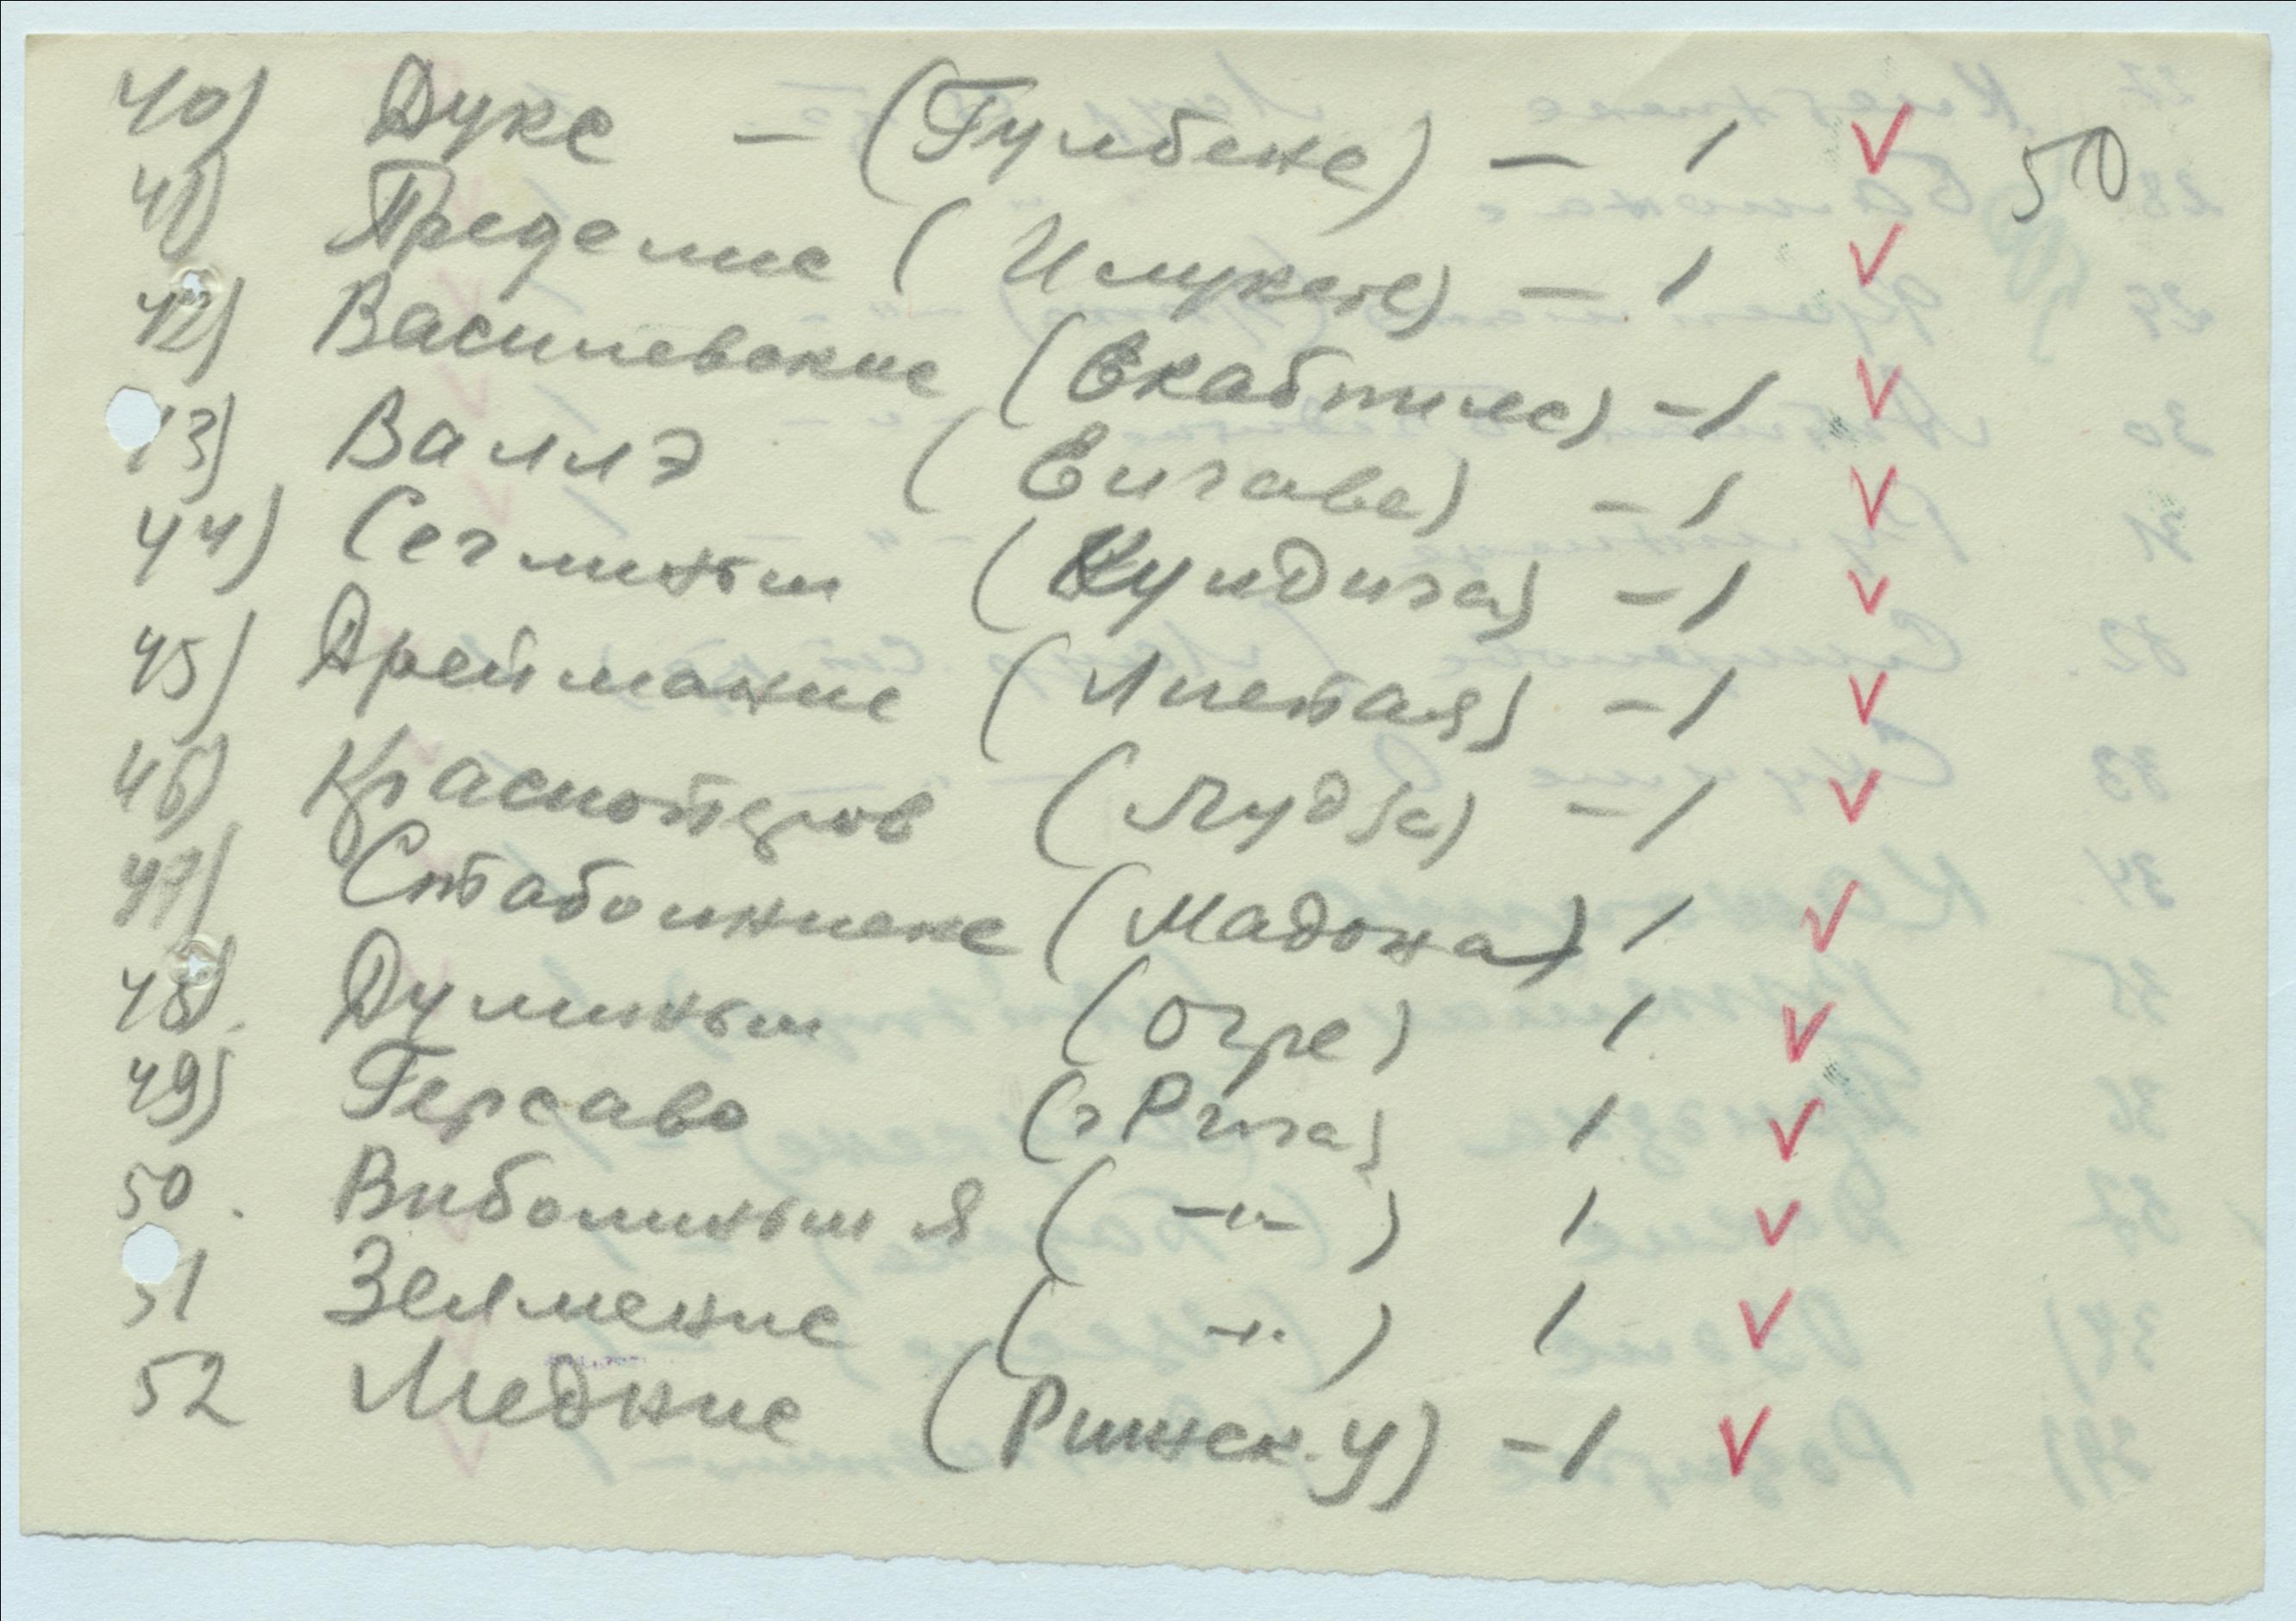 40) Дукс — (Гулбене) — 1 ✓ 50
41) Пределис (Илуксте) — 1 ✓
42) Василевские (Екабпилс) – 1 ✓
43) Валлэ (Елгава) – 1 ✓
44) Сеглиньш (Кулдига) – 1 ✓
45) Дрейманис (Лиепая) – 1 ✓
46) Красноперов (Лудза) – 1 ✓
47) Стаболниекс (Мадона) 1 ✓
48). Думиньш (Огре) 1 ✓
49) Герсаво (г Рига) 1 ✓
50. Виболиньш Я (—"—) 1 ✓
51 Зелменис (—"—) 1 ✓
52 Меднис (Рижск. У) – 1 ✓